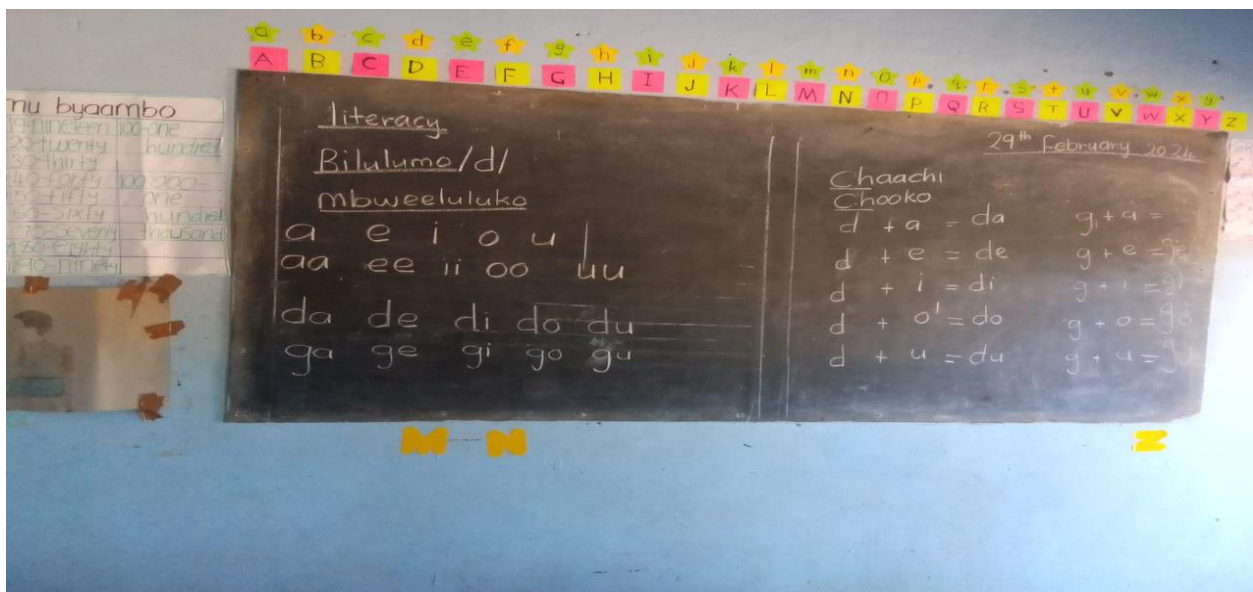 a b c d e f g h i j k l m n o p q r s t u v w x y
A B C D E F G H I J K L M N O P Q R S T U V W X Y Z
mu byaambo
19-nineteen 100-one
20-twenty hundred
30-thirty
40-forty 100 000-
50-fifty one
60-sixty hundred
70-seventy thousand
80-eighty
90-ninety
literacy
Bilulumo/d/
mbweeluluko
a e i o u
aa ee ii oo uu
da de di do du
ga ge gi go gu
29th February 2024
Chaachi
Chooko
d + a = da g + a =
d + e = de g + e = ge
d + i = di g + i = gi
d + o = do g + o = go
d + u = du g + u = gu
M N Z